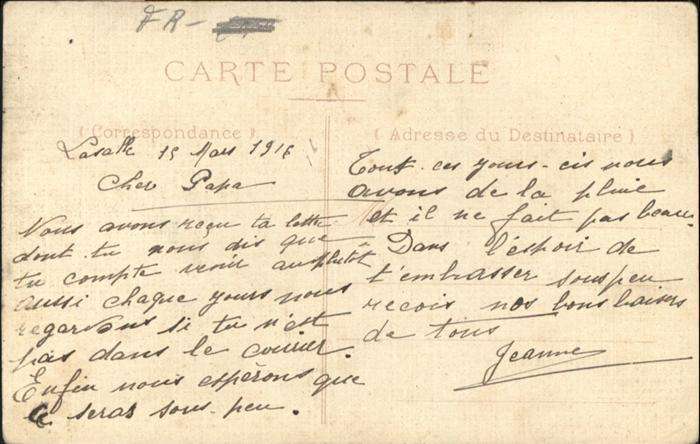 FR-
CARTE POSTALE
(Correspondance)
(Adresse du Destinataire)
Lasalle 15 Mars 1916
Cher Papa
Nous avons reçu ta lettre
dont tu nous dis que
tu compte venir au plutôt
aussi chaque yours nous
regardons si tu n'est
pas dans le courrier.
Enfin nous espérons que
ce seras sous-peu.
Tout-ces yours-cis nous
avons de la pluie
et il ne fait pas beau.
Dans l'espoir de
t'embrasser sous peu
recois nos bons baisers
de tous
Jeanne